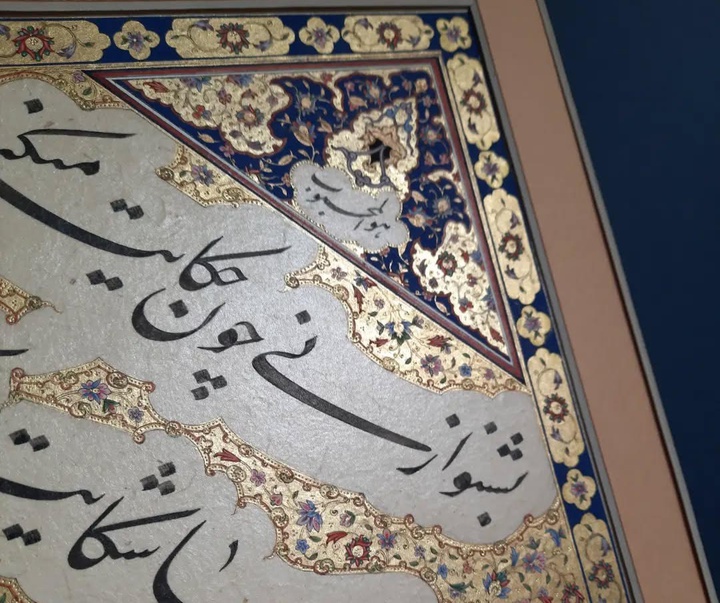 هو المحبوب
بشنو از نی چون حکایت میکن
شکایت